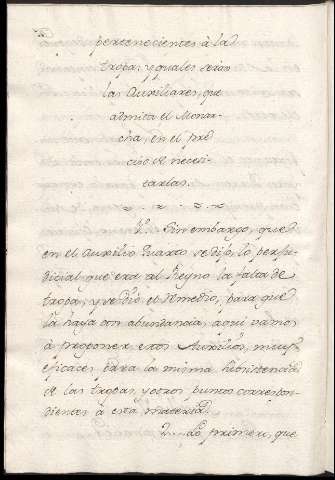 pertenecientes à la
tropa, y quales serán
los Auxiliares, que
admita el Monar-
cha, en el pre
ciso de necesi-
tarlas.
1. Sin embargo, que
en el Auxilio Quarto se dijo, lo perju-
dicial que era al Reyno la falta de
tropa, y se dió el remedio, para que
la haya con abundancia, aqui vamos
à proponer otros Auxilios, muy
eficaces para la misma subsistencia
de las tropas, y otros puntos correspon-
dientes à esta materia.
2. Lo primero, que